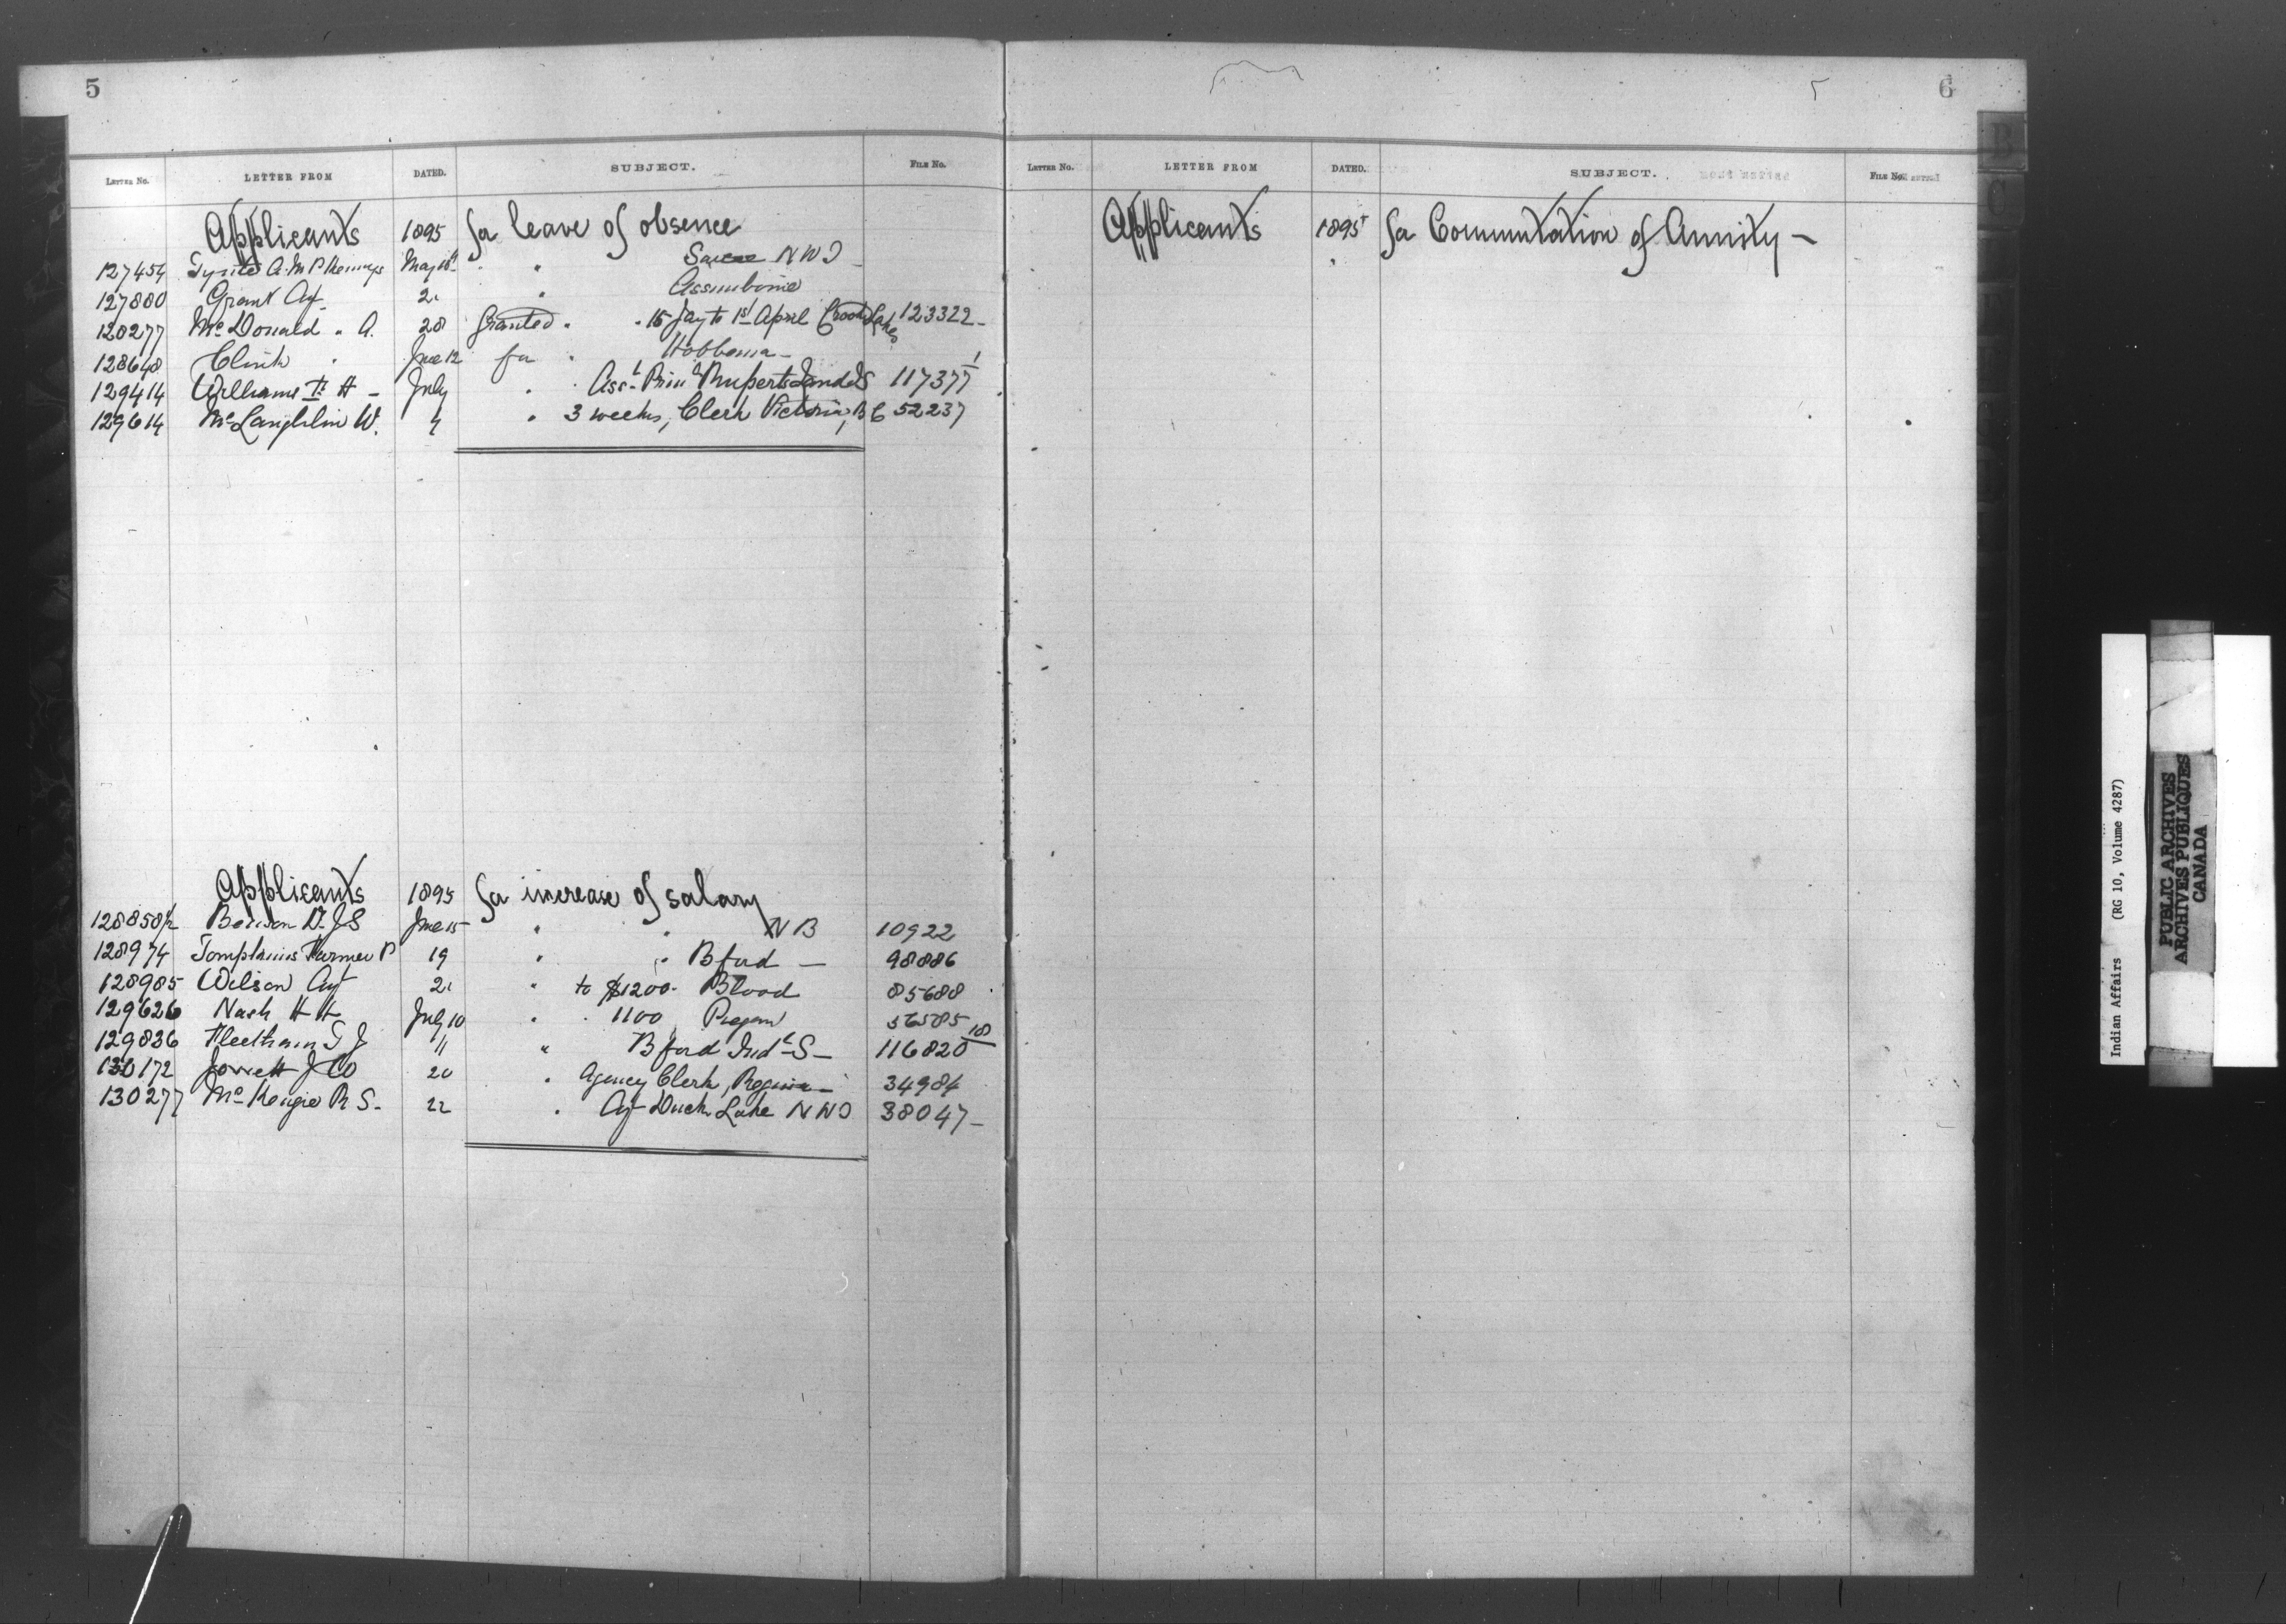 5
LETTER No. LETTER FROM DATED. SUBJECT. FILE No.
Applicants 1895 for leave of absence
127454 A. M P May " Sarcee N W T
127880 Grant Agt 21 " Assiniboine
128277 McDonald " A. 28 Granted " " 15 Jay to 1st April Crooked Lakes 123322
128648 Clink " June 12 for " Hobbema
129414 Williams H July " Asst Prinl Ruperts Land I S 117377/1
129614 McLaughlin W. 4 " 3 weeks, Clerk Victoria, B C 52237
Applicants 1895 for increase of salary
128858½ Benson Dr J S June 15 " " N B 10922
128974 Tompkins Farmer P 19 " " B ford — 98886
128985 Wilson Agt 21 " to $1200. Blood 85688
129626 Nash H H July 10 " " 1100 Piegan 56585
129836 Fleetham T J 11 " B ford Indl S — 116820/18
130172 J 20 " Agency Clerk, Regina — 34984
130277 McKenzie R S. 22 " Agt Duck Lake N W T 38047 —
6
LETTER No. LETTER FROM DATED. SUBJECT. FILE No.
Applicants 1895 for Commutation of Annuity —
B
C
Indian Affairs (RG 10, Volume 4287)
PUBLIC ARCHIVES
ARCHIVES PUBLIQUES
CANADA